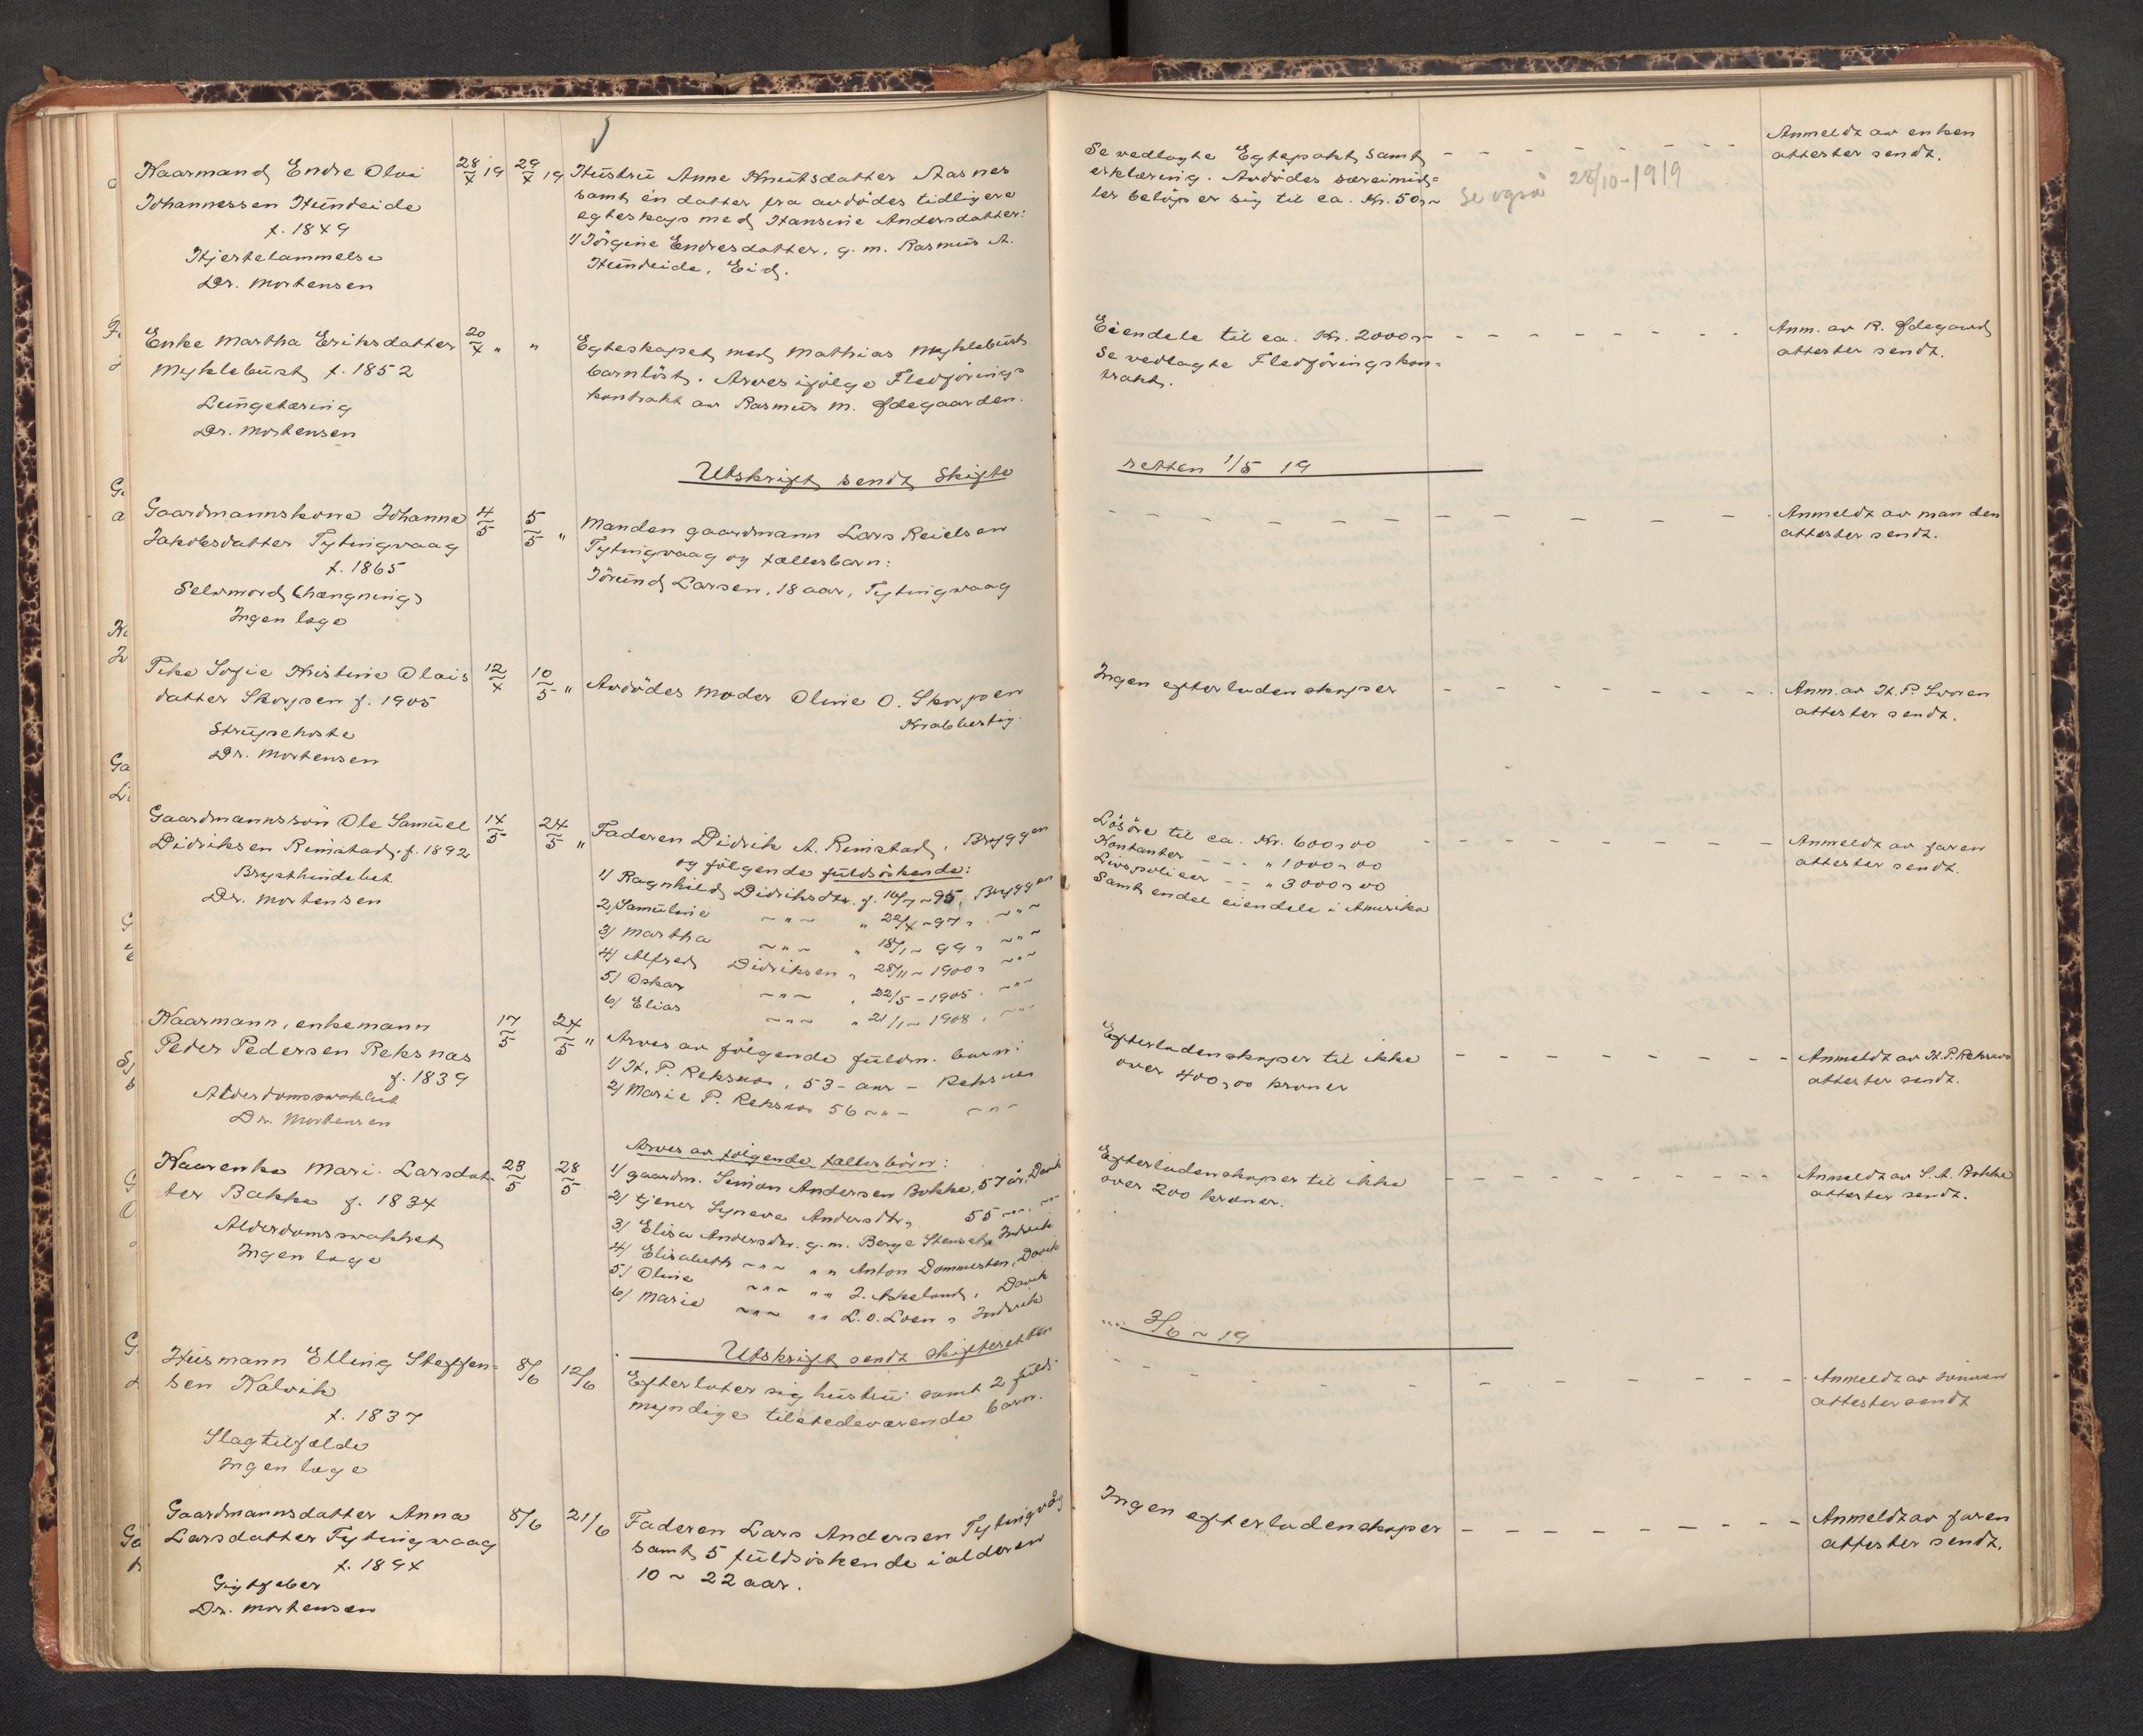 Kaarmand Endre Olai 28/4 19 29/4 19
Johannessen Hundeide
f. 1849
Hjertelammelse
Dr. Mortensen
Hustru Anne Knutsdatter Aasnes
samt én datter fra avdødes tidligere
egteskap med Hansine Andersdatter:
1/ Jörgine Endresdatter, g. m. Rasmus A.
Hundeide, Eid.
Se vedlagte Egtepakt samt
erklæring. Avdødes særeimid=
ler beløper sig til ca. Kr. 50,~
Se også 28/10-1919
Anmeldt av enken
attester sendt.
Enke Martha Eriksdatter 20/4 " "
Myklebust f. 1852
Lungetæring
Dr. Mortensen
Egteskapet med Mathias Myklebust
barnløst. Arves ifølge Fledførings
kontrakt av Rasmus M. Ødegaarden.
Eiendele til ca. Kr. 2000,~
Se vedlagte Fledføringskon=
trakt.
Anm. av R. Ødegaard
attester sendt.
Utskrift sendt Skifte
retten 1/5 19
Gaardmannskone Johanne 4/5 5/5 "
Jakobsdatter Tytingvaag
f. 1865
Selvmord (hængning)
Ingen læge
Manden gaardmann Lars Reielsen
Tytingvaag og fællesbarn:
Jörund Larsen, 18 aar, Tytingvaag
Anmeldt av manden
attester sendt.
Pike Sofie Kristine Olais 12/4 10/5 "
datter Skorpen f. 1905
Strupehoste
Dr. Mortensen
Avdødes moder Oline O. Skorpen
Krabbestig.
Ingen efterladenskaper
Anm. av H. P. Svoren
attester sendt.
Gaardmannssön Ole Samuel 14/5 24/5 "
Didriksen Rimstad. f. 1892
Brysthindebet.
Dr. Mortensen
Faderen Didrik A. Rimstad, Bryggen
og følgende fuldsøskende:
1/ Ragnhild Didriksdtr. f. 16/7 ~ 95, Bryggen
2/ Samuline ~"~ " 22/4 ~ 97, ~"~
3/ Martha ~"~ " 18/1 ~ 99, ~"~
4/ Alfred Didriksen " 28/11 ~ 1900, ~"~
5/ Oskar ~"~ " 22/5 - 1905. ~"~
6/ Elias ~"~ " 21/1 ~ 1908, ~"~
Lösöre til ca. Kr. 600,00
Kontanter - - - " 1000,00
Livspoliser - - " 3000,00
Samt endel eiendele i Amerika
Anmeldt av faren
attester sendt.
Kaarmann, enkemann 17/5 24/5 "
Peder Pedersen Reksnas
f. 1839
Alderdomssvakhet
Dr. Mortensen
Arves av følgende fuldm. barn:
1/ H. P. Reksnes, 53 - aar - Reksnes
2/ Marie P. Reksnes 56 ~"- ~"-
Efterladenskaper til ikke
over 400,00 kroner
Anmeldt av H. P. Reksnes
attester sendt.
Kaarenke Mari Larsdat- 23/5 28/5
ter Bakke f. 1834
Alderdomssvakhet
Ingen læge
Arves av følgende fællesbörn:
1/ gaardm. Simon Andersen Bakke, 57 år, Davik
2/ tjener Synneve Andersdtr, 55 ~"~ ~"~
3/ Elisa Andersdtr. g. m. Berge Indvik
4/ Elisabeth ~"~ " " Anton Dommesten, Davik
5/ Oline ~"~ " " J. Askeland, Davik
6/ Marie ~"~ " " L. O. Loen, Indvik
Efterladenskaper til ikke
over 200 kroner.
Anmeldt av S. A. Bakke
attester sendt.
Utskrift sendt skifteretten
3/6 ~ 19
Husmann Elling Steffen- 8/6 12/6
sen Kalvik
f. 1837
Slagtilfælde
Ingen læge
Efterlater sig hustru samt 2 fuld-
myndige tilstedeværende barn.
Anmeldt av sönnen
attester sendt
Gaardmannsdatter Anna 8/6 21/6
Larsdatter Tytingvaag
f. 1894
Gigtfeber
Dr. Mortensen
Faderen Lars Andersen Tytingvåg
samt 5 fuldsøskende i alderen
10 ~ 22 aar.
Ingen efterladenskaper
Anmeldt av faren
attester sendt.